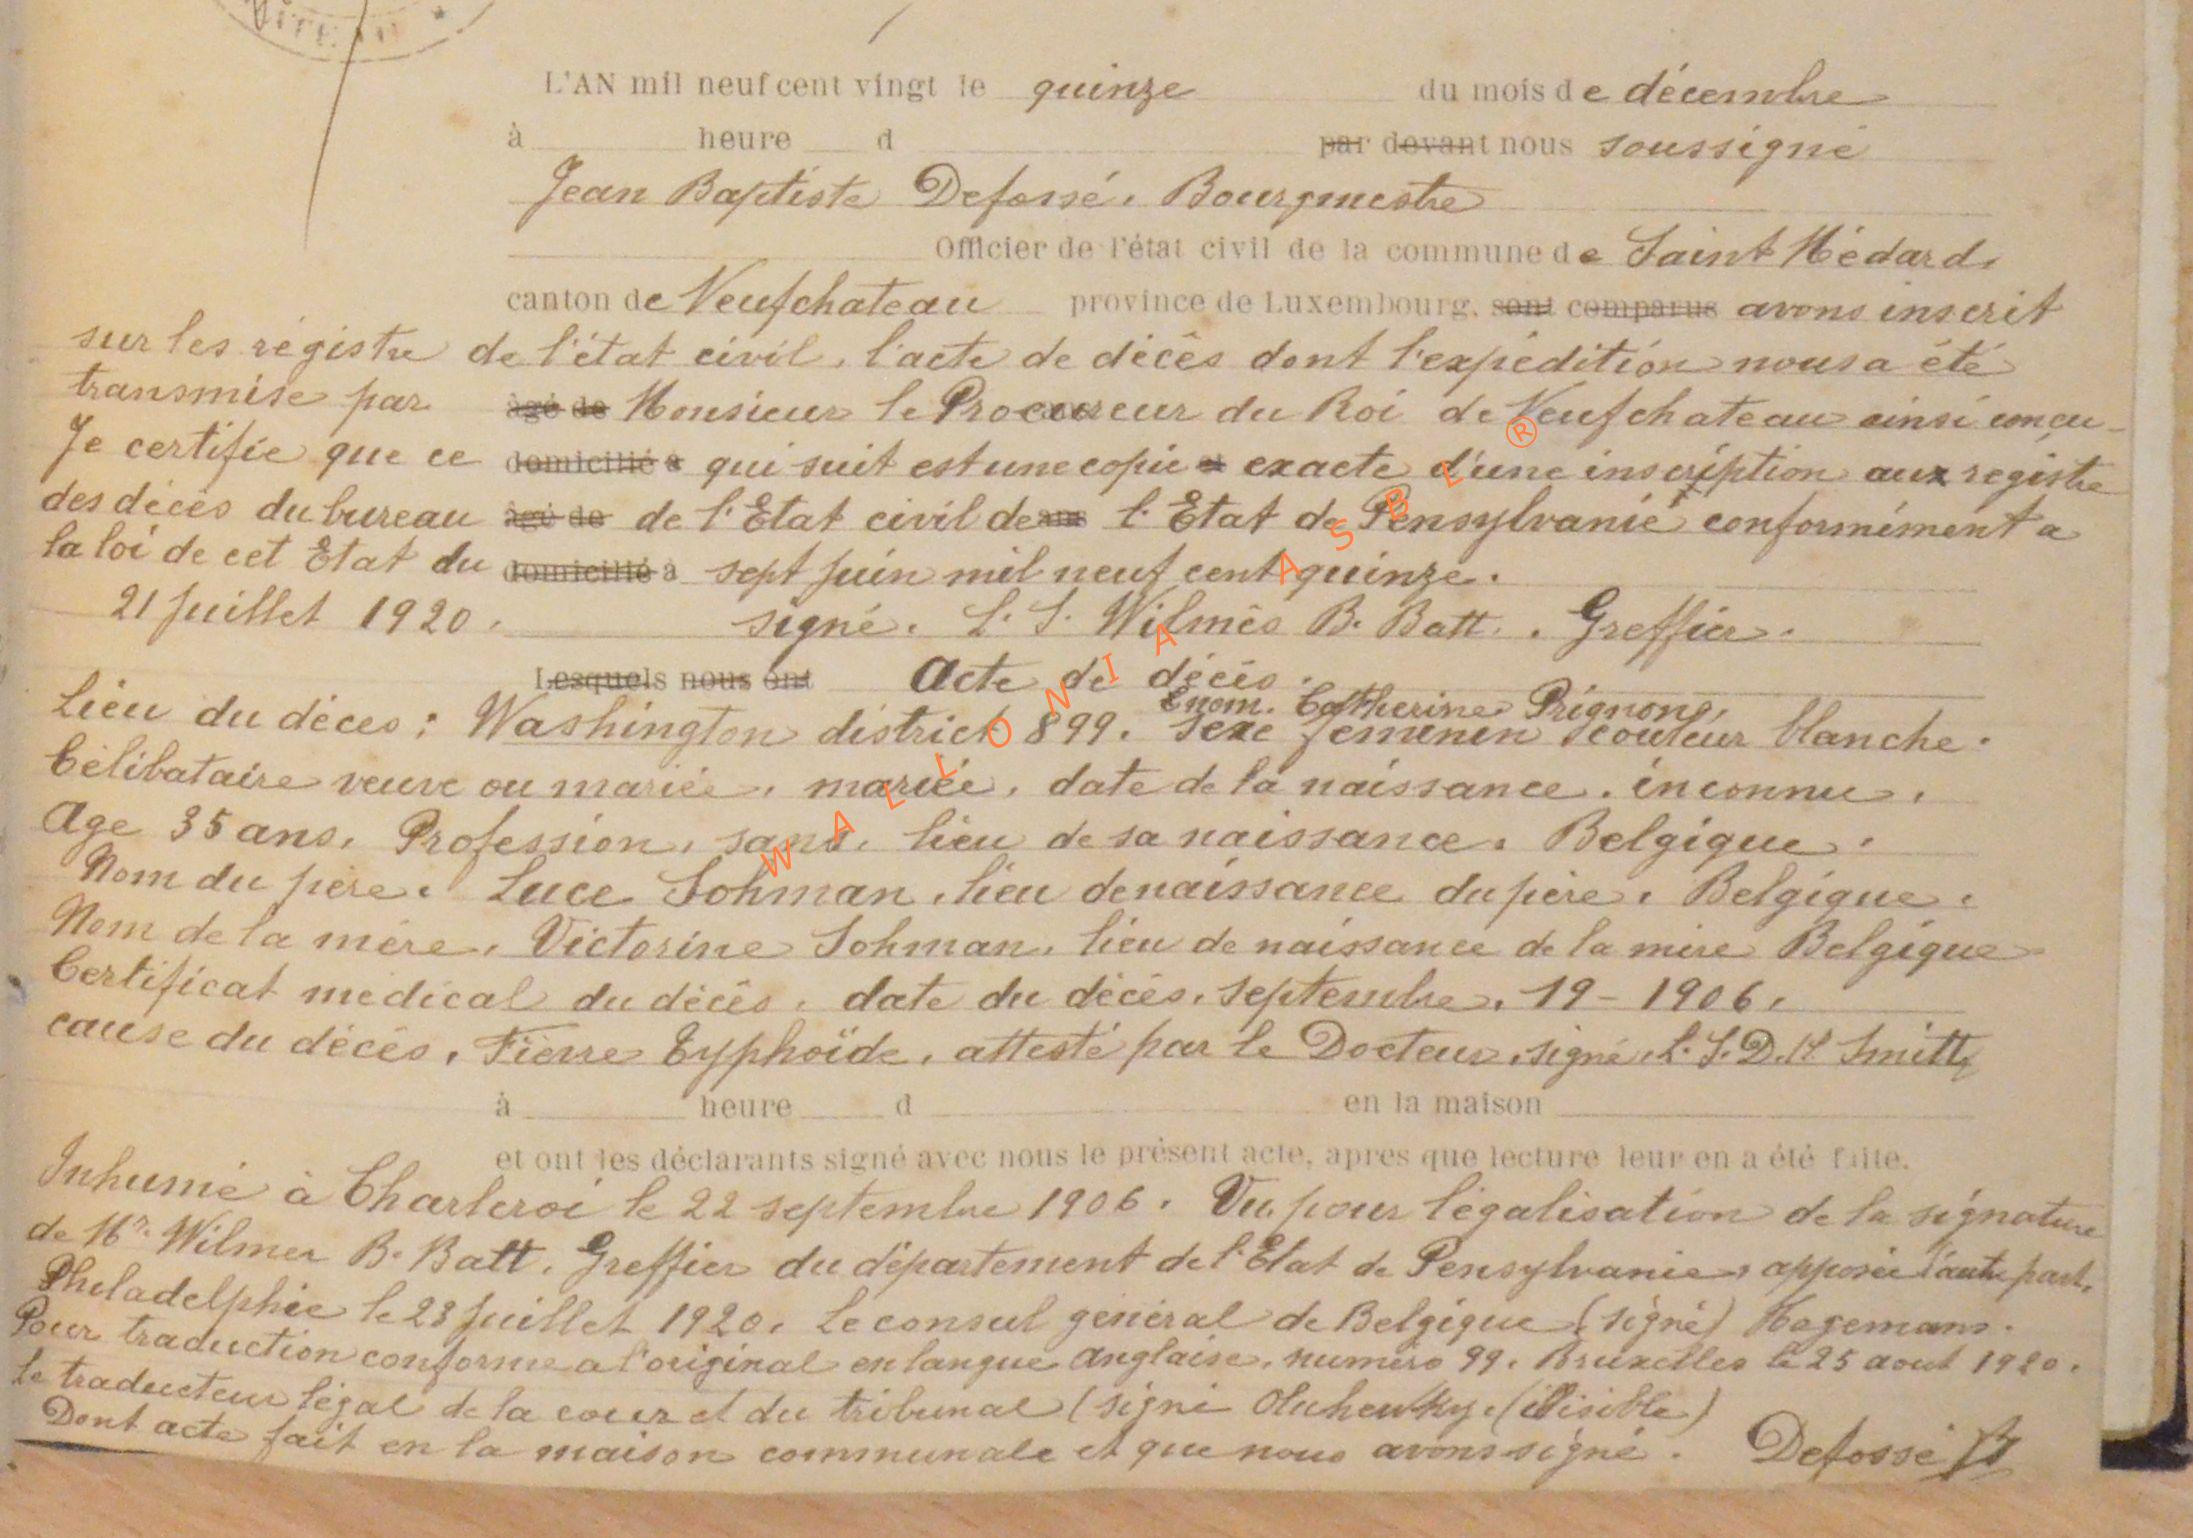 L'AN mil neuf cent vingt le quinze du mois de décembre
à heure d par devant nous soussigné
Jean Baptiste Defossé, Bourgmestre
Officier de l'état civil de la commune de Saint Médard,
canton de Neufchateau province de Luxembourg, sont comparus avons inscrit
sur les régistre de l'état civil, l'acte de décès dont l'expédition nous a été
transmise par âgé de Monsieur le Procureur du Roi de Neufchateau ainsi conçu
Je certifie que ce domicilié à qui suit est une copie exacte d'une inscription aux registre
des décès du bureau âgé de de l'Etat civil de l'Etat de Pensylvanie conformément a
la loi de cet Etat du domicilié à sept juin mil neuf cent quinze.
21 juillet 1920. signé. L. S. Wilmès B. Batt. Greffier.
Lesquels nous ont Acte de décès.
nom. Catherine Prignong,
Lieu du décès : Washington district 899. sexe femenin couleur blanche.
Célibataire veuve ou mariée, mariée, date de la naissance. inconnue.
Age 35 ans, Profession, sans, lieu de sa naissance. Belgique.
Nom du père. Luce Sohman, lieu de naissance du père. Belgique.
Nom de la mère, Victorine Sohman, lieu de naissance de la mère Belgique
Certificat médical du décès, date du décès, septembre, 19 - 1906,
cause du décès, Fièvre Typhoïde, attesté par le Docteur, signé, L. S. D. H Smitt
à heure d en la maison
et ont les déclarants signé avec nous le présent acte, apres que lecture leur en a été faite.
Inhumé à Charleroi le 22 septembre 1906. Vu pour légalisation de la signature
de Mr. Wilmer B. Batt, Greffier du département de l'Etat de Pensylvanie, apposée d'autre part,
Philadelphie le 23 juillet 1920, Le consul général de Belgique (signé) Hagemans.
Pour traduction conforme a l'original en langue anglaise, numéro 99, Bruxelles le 25 aout 1920.
Le traducteur légal de la cour et du tribunal (signé (illisible)
Dont acte fait en la maison communale et que nous avons signé. Defossé JB
WALLONIA ASBL ®